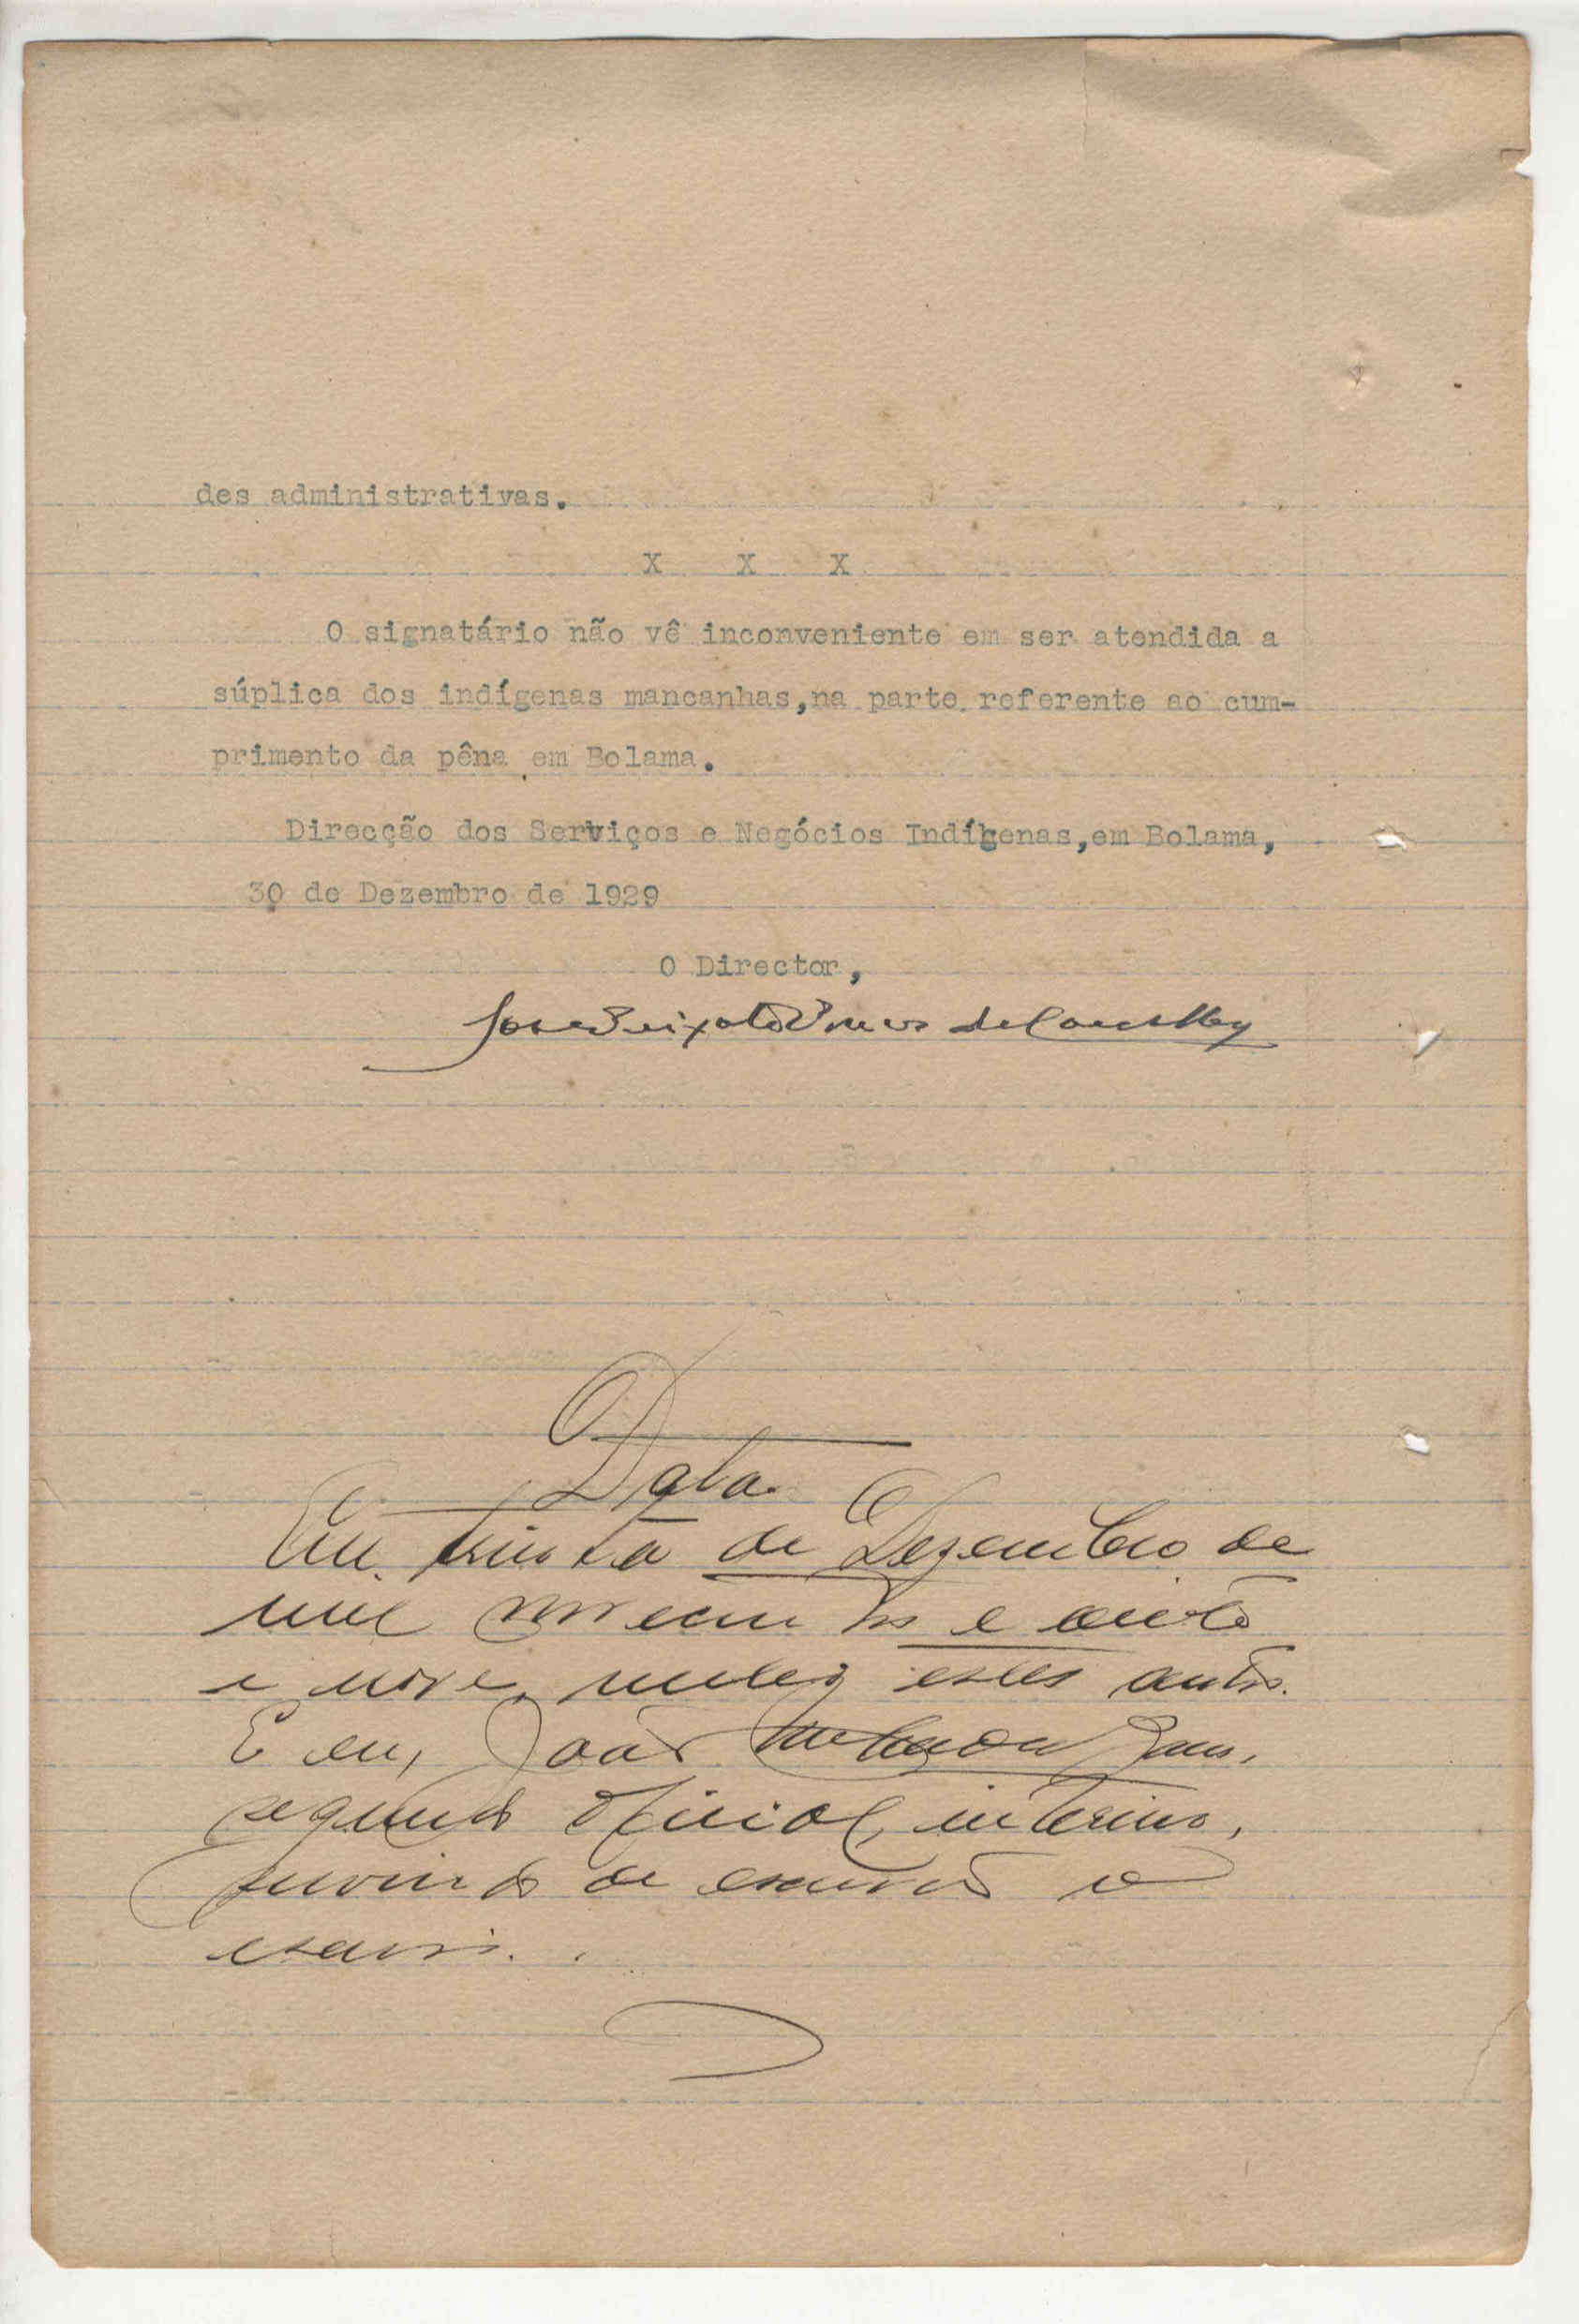 des administrativas.
X X X
O signatário não vê inconveniente em ser atendida a
súplica dos indígenas mancanhas,na parte referente ao cum-
primento da pêna em Bolama.
Direcção dos Serviços e Negócios Indígenas,em Bolama,
30 de Dezembro de 1929
O Director,
José Peixoto Ponces de Carvalho
Data
Em trinta de Dezembro de
mil novecentos e vinte
e nove, recebi estes autos.
E eu, João
segundo oficial, interino,
servindo de escrivão o
escrevi.